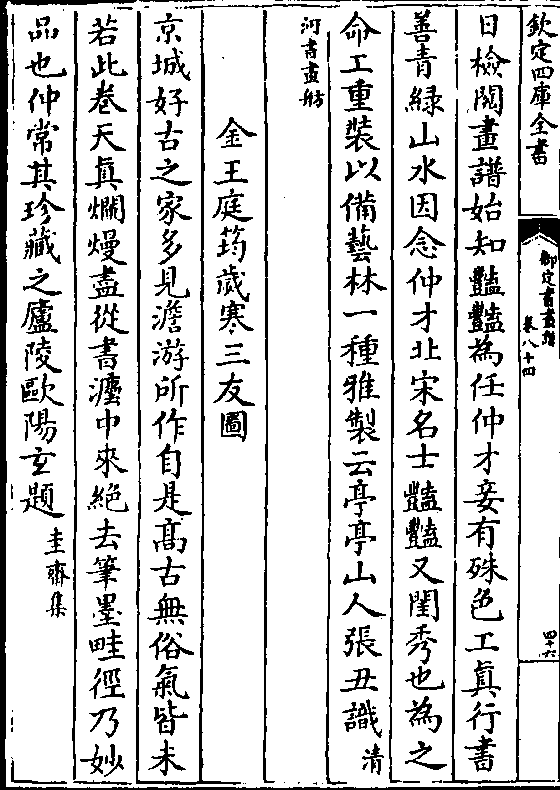 欽定四庫全書
御定書畫譜
卷八十四
四十六
日檢閱畫譜始知豔豔為任仲才妾有殊色工真行書
善青綠山水因念仲才北宋名士豔豔又閨秀也為之
命工重裝以備藝林一種雅製云亭亭山人張丑識清
河書畫舫
金王庭筠歲寒三友圖
京城好古之家多見澹游所作自是髙古無俗氣皆未
若此卷天真爛熳盡從書灋中來絕去筆墨畦徑乃妙
品也仲常其珍藏之廬陵歐陽玄題圭齋集